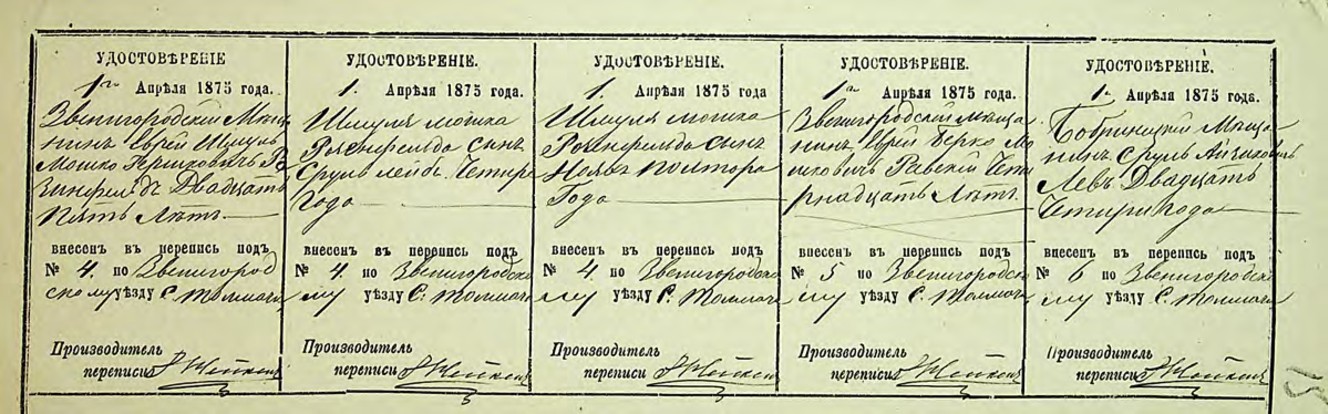 УДОСТОВѢРЕНІЕ
1го Апрѣля 1875 года.
Звенигородскій Мѣща
нинъ Еврей Шмуль
Мошко Гершковичъ Ро
зинфельдъ Двадцать
Пять Лѣтъ
внесенъ въ перепись подъ
№ 4. по Звенигород
скому уѣзду С. Толмачъ
Производитель
переписи
УДОСТОВѢРЕНІЕ.
1. Апрѣля 1875 года.
Шмуля мошка
Розенфельда сынъ
Сруль лейбъ. Четире
Года
внесенъ въ перепись подъ
№ 4 по Звенигородско
му уѣзду С. Толмачъ
Производитель
переписи
УДОСТОВѢРЕНІЕ.
1. Апрѣля 1875 года
Шмуля мошка
Розенфельда сынъ
полтора
Года
внесенъ въ перепись подъ
№ 4 по Звенигородско
му уѣзду С. Толмачъ
Производитель
переписи
УДОСТОВѢРЕНІЕ.
1го Апрѣля 1875 года.
Звенигородскій Мѣща
нинъ Еврей Берко Мо
шковичъ Равскій Чети
рнадцать Лѣтъ.
внесенъ въ перепись подъ
№ 5 по Звенигородско
му уѣзду С. Толмачъ
Производитель
переписи
УДОСТОВѢРЕНІЕ.
1го Апрѣля 1875 года.
Бобринецкій Мѣща
нинъ Сруль Айзиковичъ
Левъ Двадцать
Четири года
внесенъ въ перепись подъ
№ 6 по Звенигородско
му уѣзду С. Толмачъ
Производитель
переписи